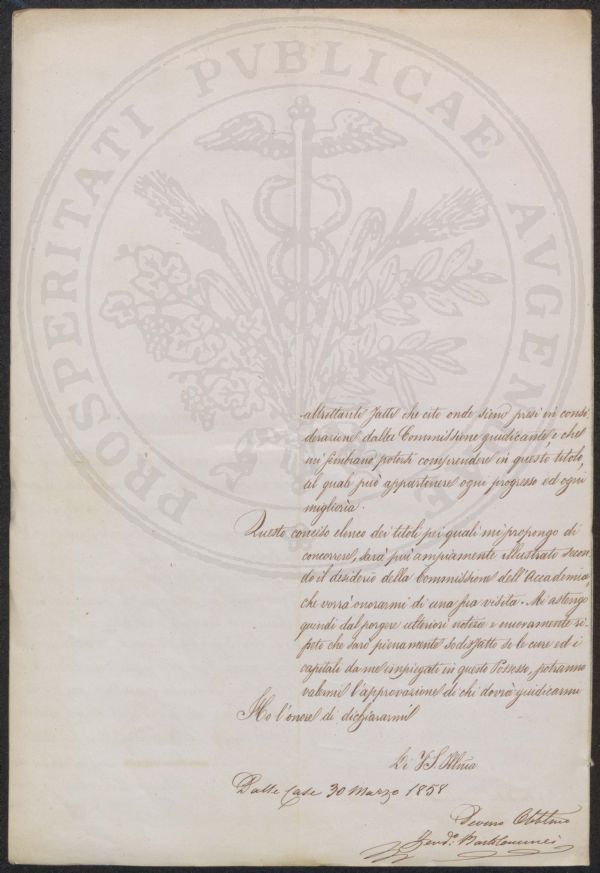 PROSPERITATI PVBLICAE AVGENDAE
altrettanti fatti che cito onde sieno presi in consi
derazione dalla Commissione giudicante, e che
mi sembrano potersi comprendere in questo titolo,
al quale può appartenere ogni progresso ed ogni
miglioria.
Questo conciso elenco dei titoli pei quali mi propongo di
concorrere, sarà più ampiamente illustrato secon
do il desiderio della Commissione dell'Accademia,
che vorrà onorarmi di una sua visita. Mi astengo
quindi dal porgere ulteriori notizie e nuovamente ri-
peto che sarò pienamente sodisfatto se le cure ed i
capitali da me impiegati in questo Possesso, potranno
valermi l'approvazione di chi dovrà giudicarmi
Ho l'onore di dichiararmi
Di V.S. Illma
Dalle Case 30 Marzo 1858
Devmo Obblmo